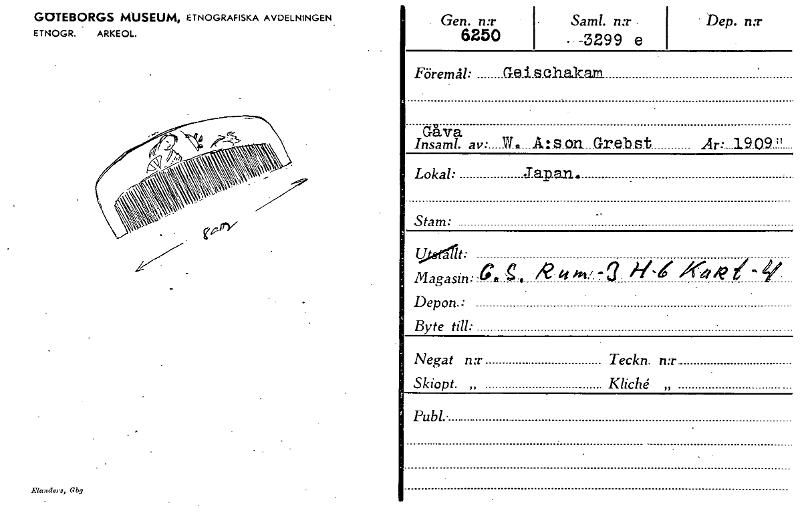 GÖTEBORGS MUSEUM, ETNOGRAFISKA AVDELNINGEN
ETNOGR. ARKEOL.
8 cm
Elanders, Gbg
Gen. n:r Saml. n:r Dep. n:r
6250 -3299 e
Föremål: Geischakam
Gåva
Insaml. av: W. A:son Grebst År: 1909
Lokal: Japan.
Stam:
Utställt:
Magasin: G.S. Rum-3 H-6 Kart-4
Depon.:
Byte till:
Negat n:r Teckn. n:r
Skiopt. „ Kliché „
Publ.